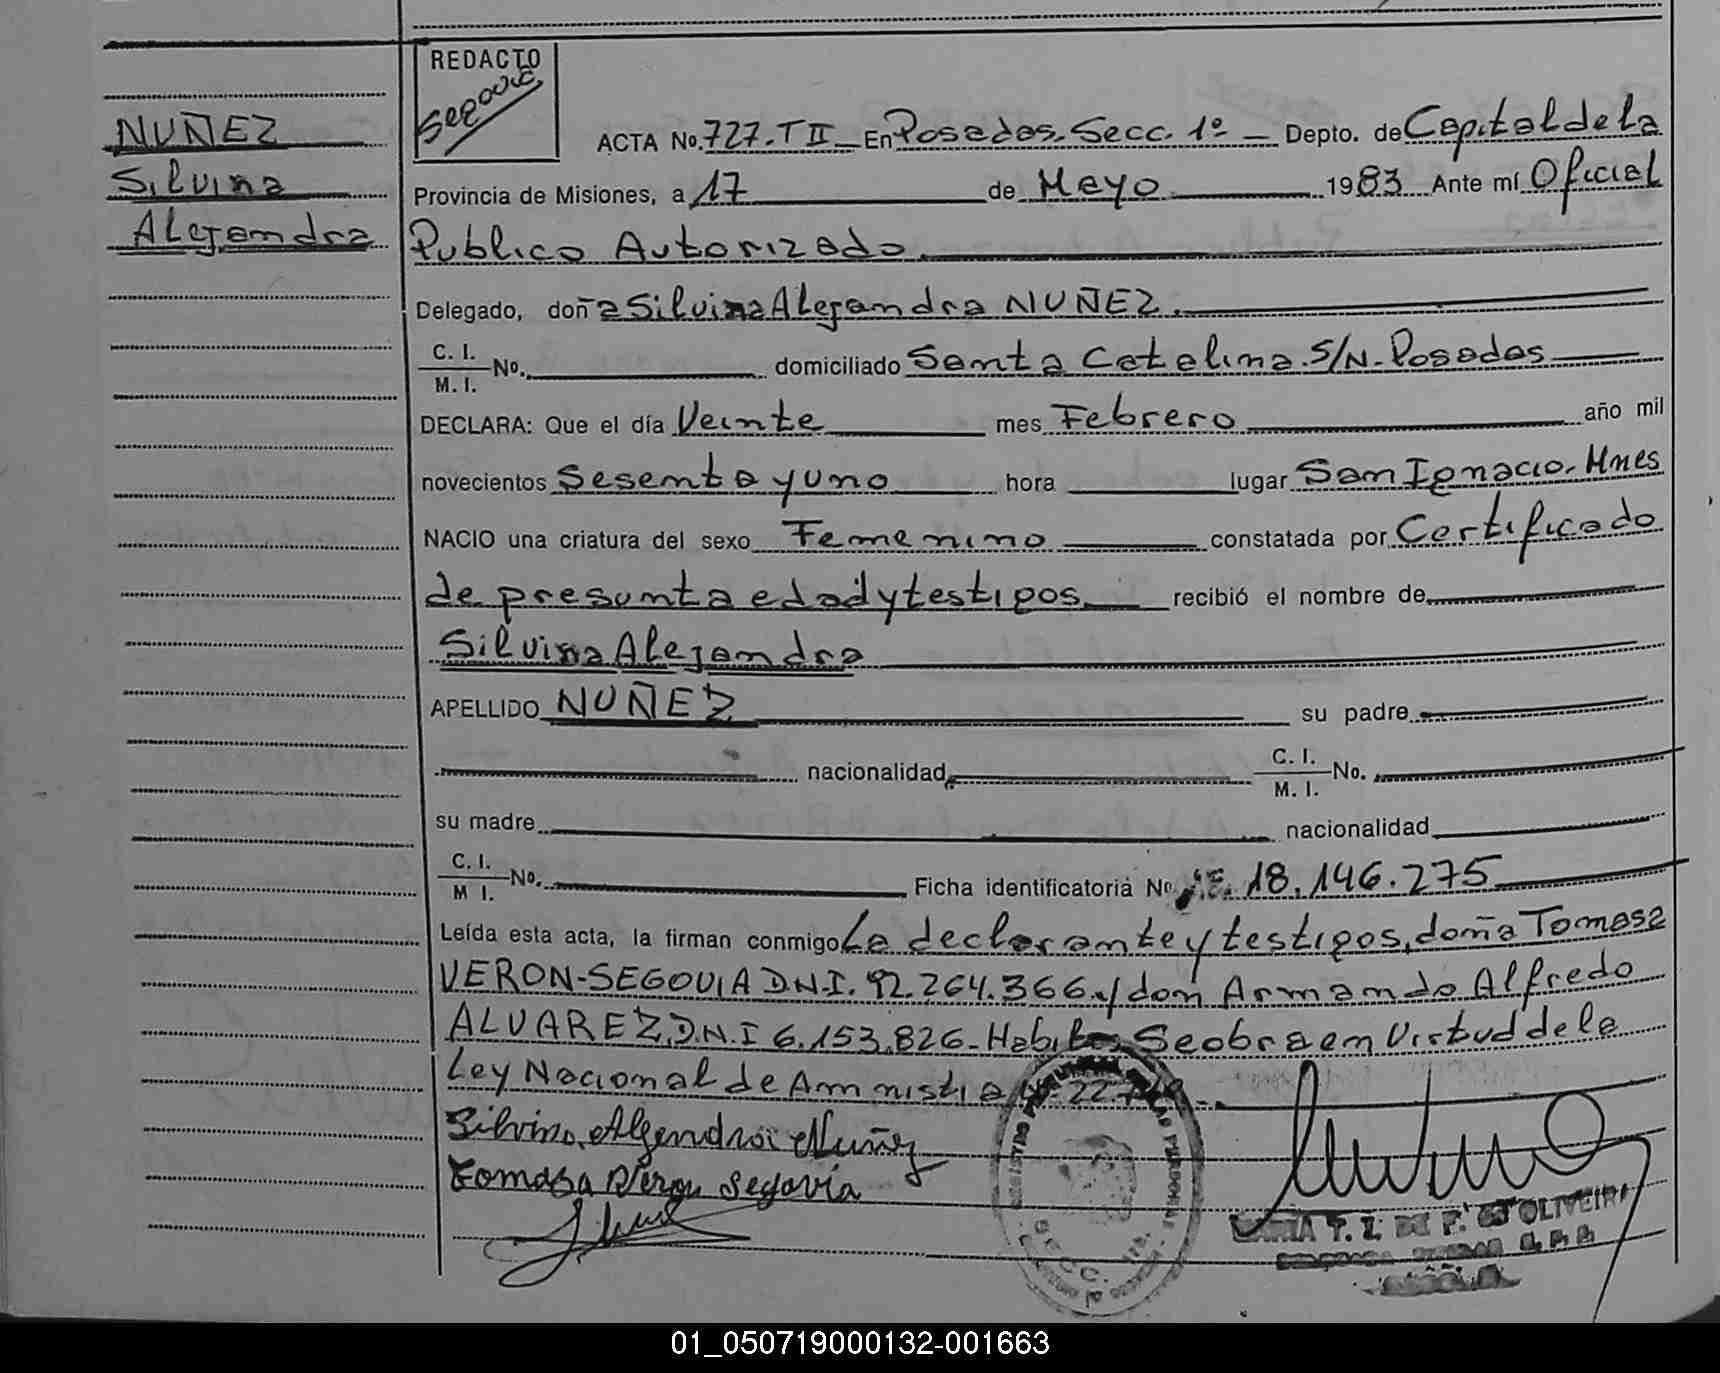 REDACTO
Segovia
NUÑEZ
Silvina
Alejandra
ACTA No. 727. T II En Posadas. Secc. 1º Depto. de Capital de la
Provincia de Misiones, a 17 de Mayo 1983 Ante mí Oficial
Publico Autorizado.
Delegado, doña Silvina Alejandra NUÑEZ.
C. I.
M. I. No. domiciliado Santa Catalina. S/N. Posadas
DECLARA: Que el día Veinte mes Febrero año mil
novecientos Sesenta y uno hora lugar San Ignacio. Mnes
NACIO una criatura del sexo Femenino constatada por Certificado
de presunta edad y testigos recibió el nombre de
Silvina Alejandra
APELLIDO NUÑEZ su padre
nacionalidad C. I.
M. I. No.
su madre nacionalidad
C. I.
M I. No. Ficha identificatoria No 18.146.275
Leída esta acta, la firman conmigo La declarante y testigos, doña Tomasa
VERON-SEGOVIA D.N.I. 92.264.366 y don Armando Alfredo
ALVAREZ, D.N.I 6.153.826- Habiles Se obra en Virtud de la
Ley Nacional de Amnistia
Silvina Alejandra Nuñez
Tomasa Veron Segovia
OLIVEIRA
01_050719000132-001663